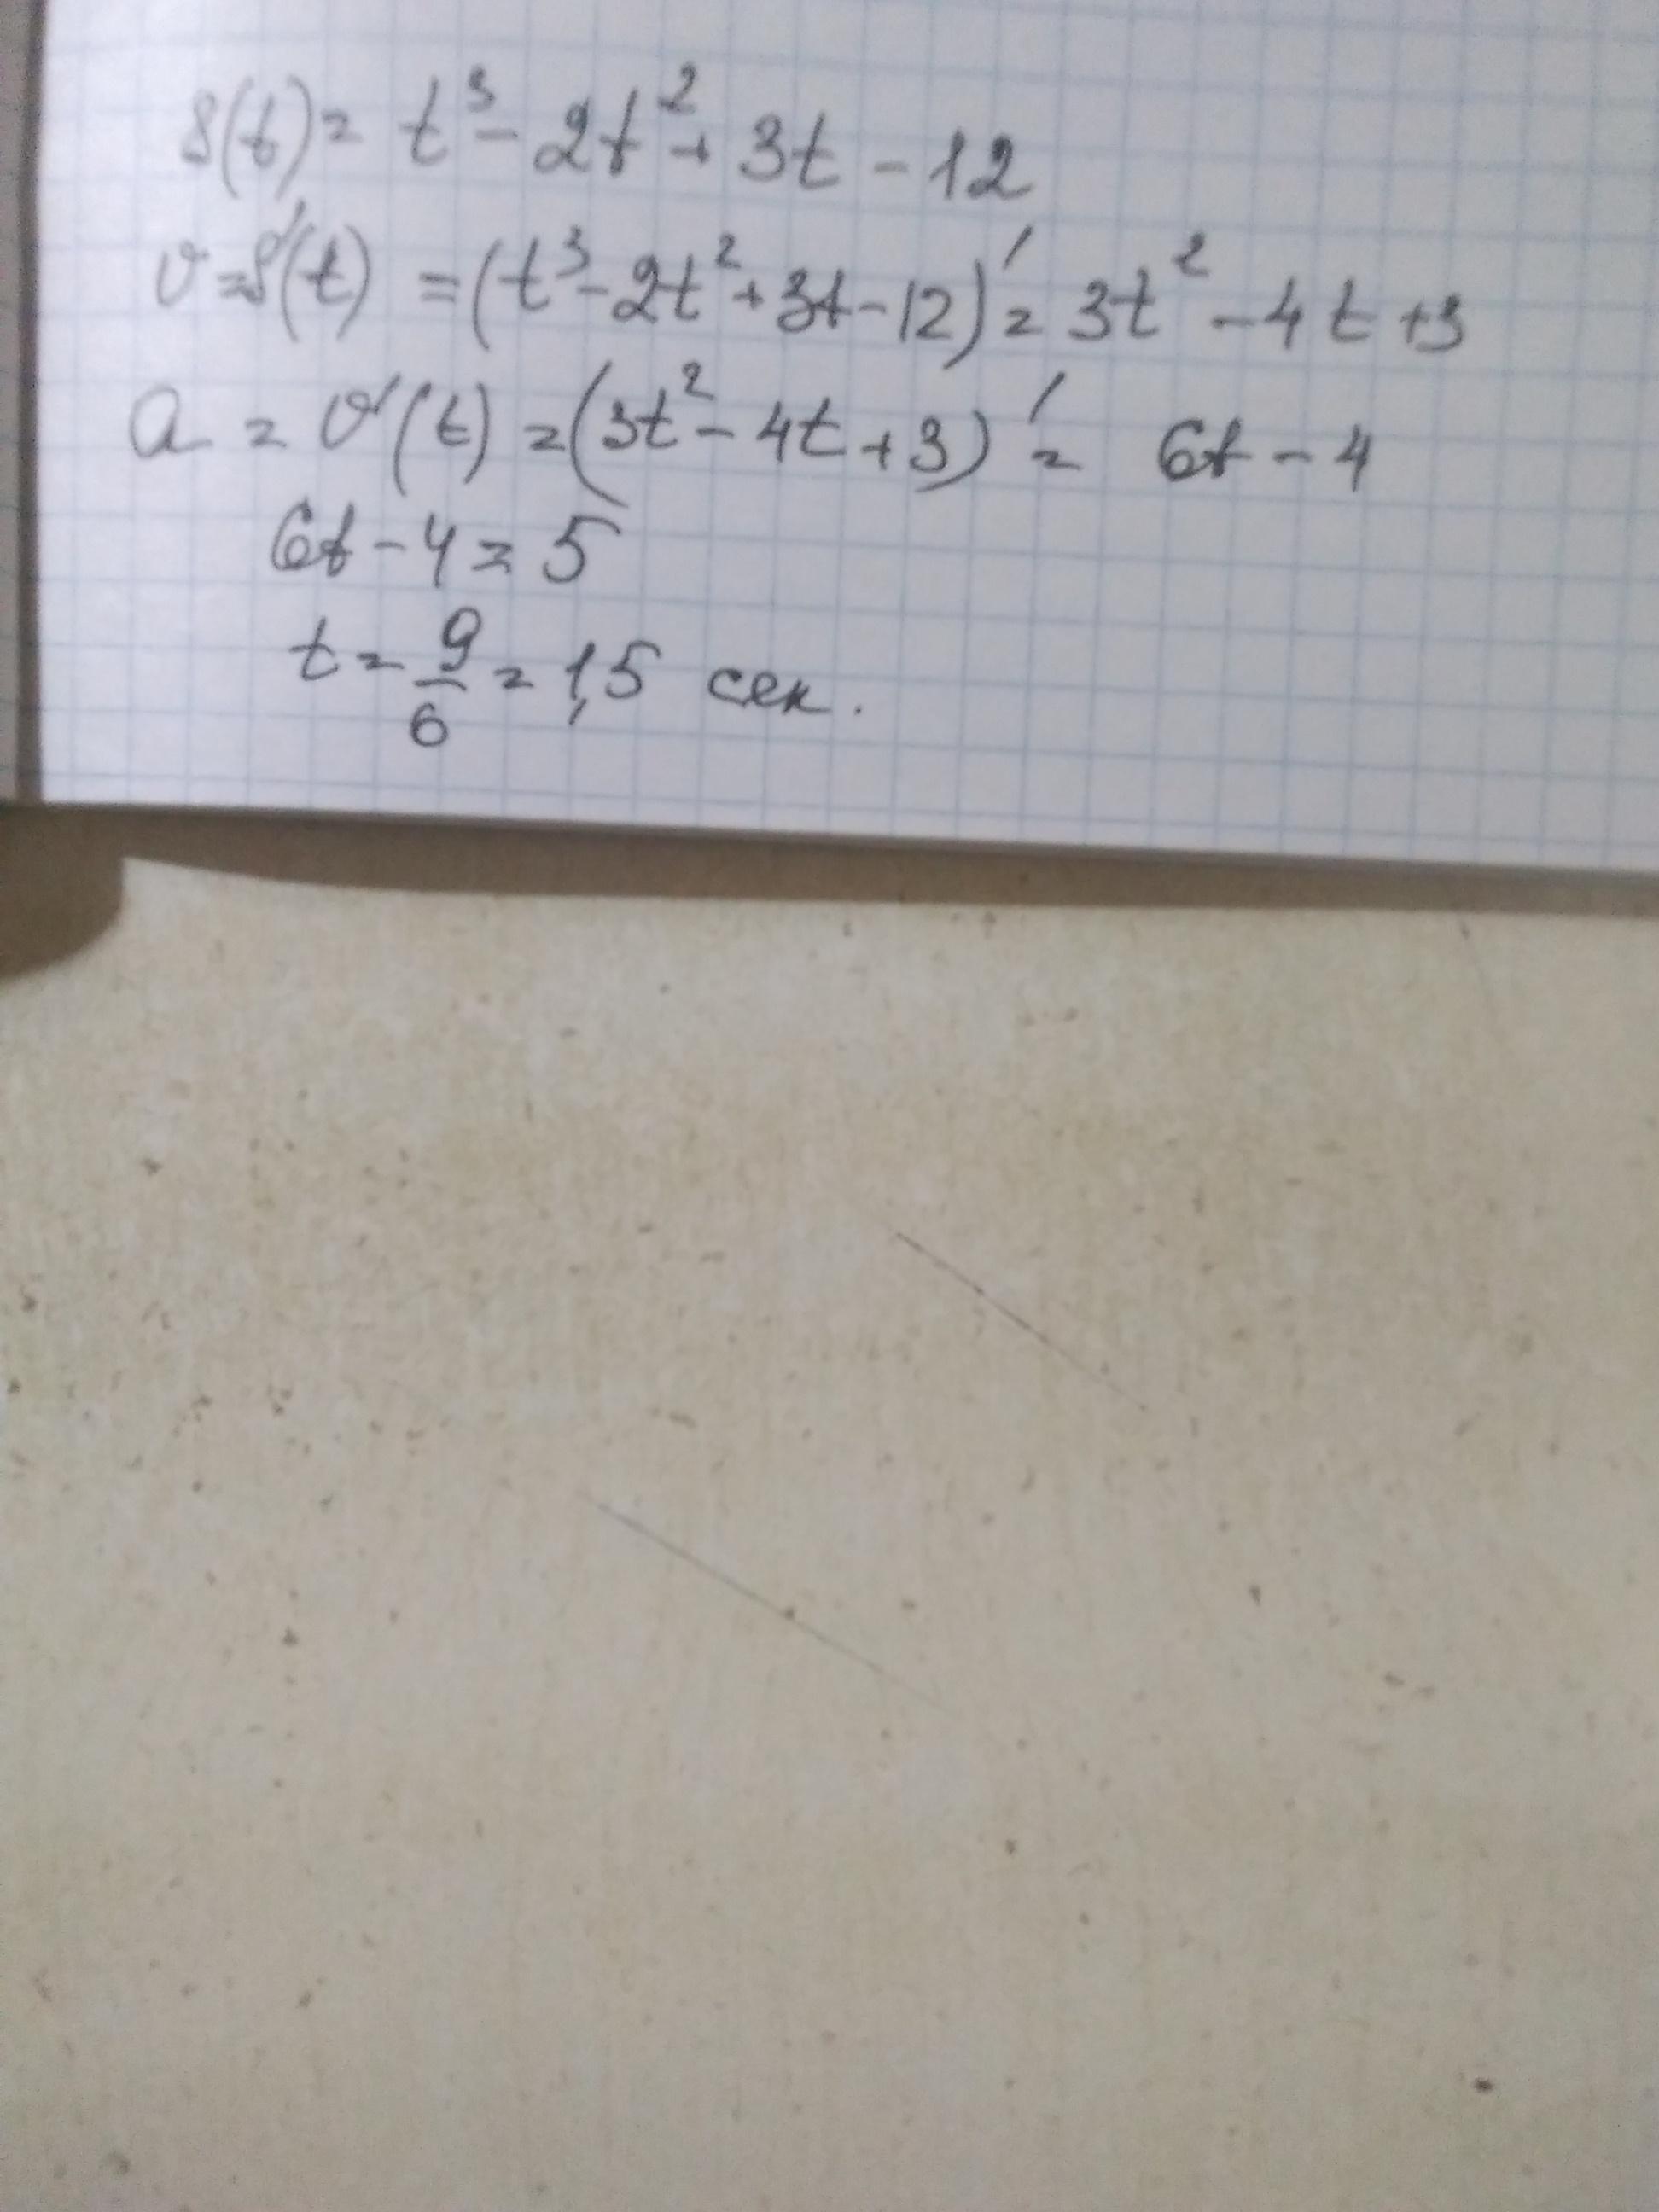 S(t) = t³ - 2t² + 3t - 12
v = S'(t) = (t³ - 2t² + 3t - 12)' = 3t² - 4t + 3
a = v'(t) = (3t² - 4t + 3)' = 6t - 4
6t - 4 = 5
t = 9/6 = 1,5 сек.